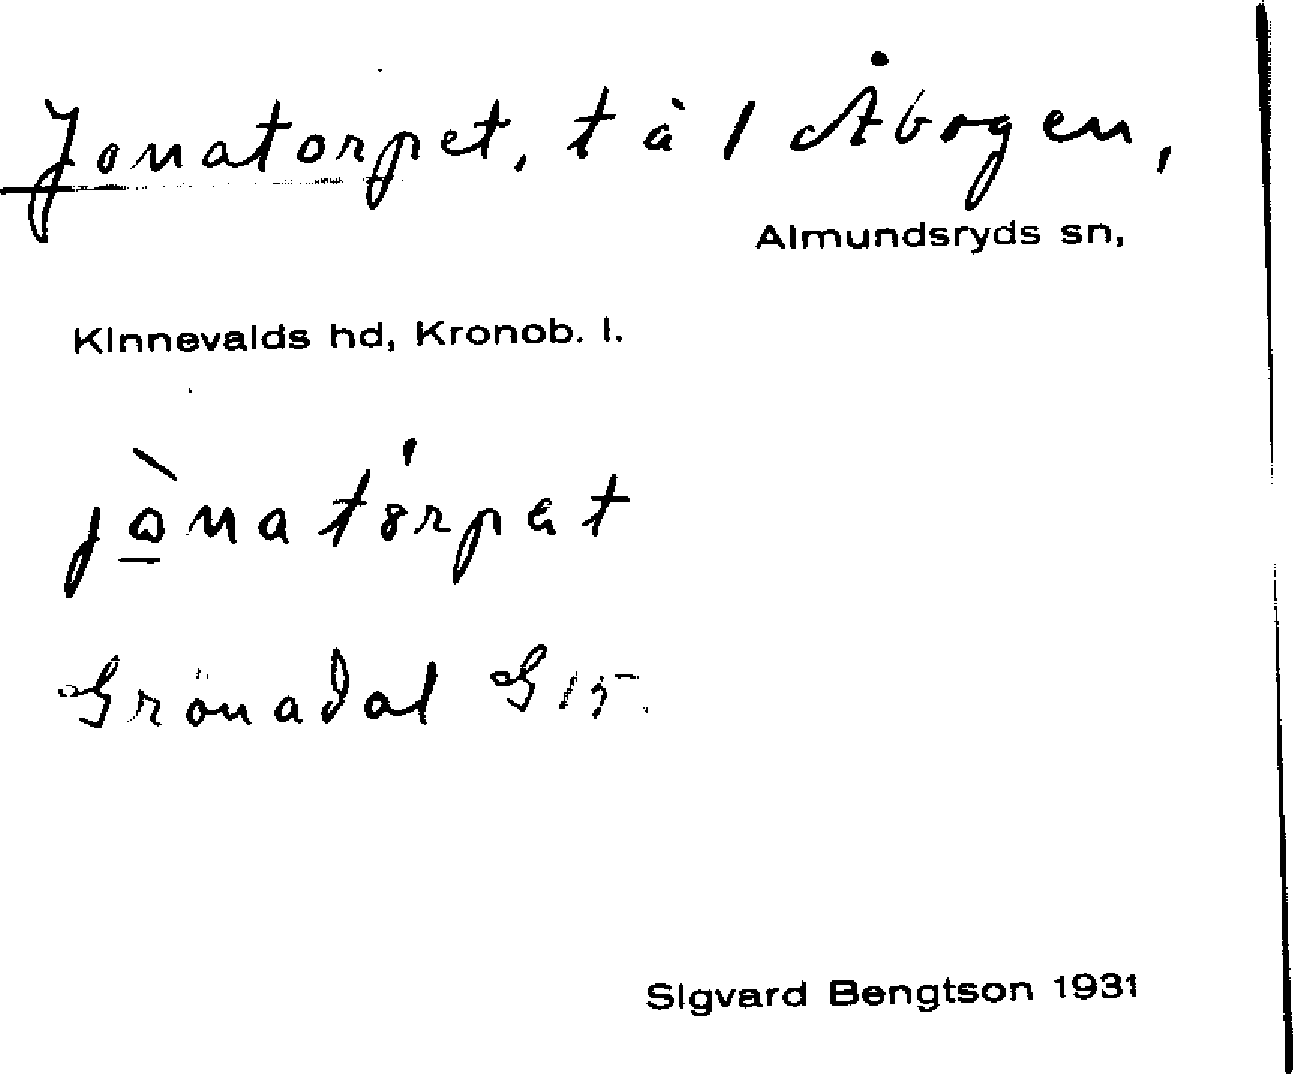 Jonatorpet, t å 1 Åbogen,
Almundsryds sn,
Kinnevalds hd, Kronob. l.
jò̱natórpet
Grönadal G 15.
Sigvard Bengtson 1931